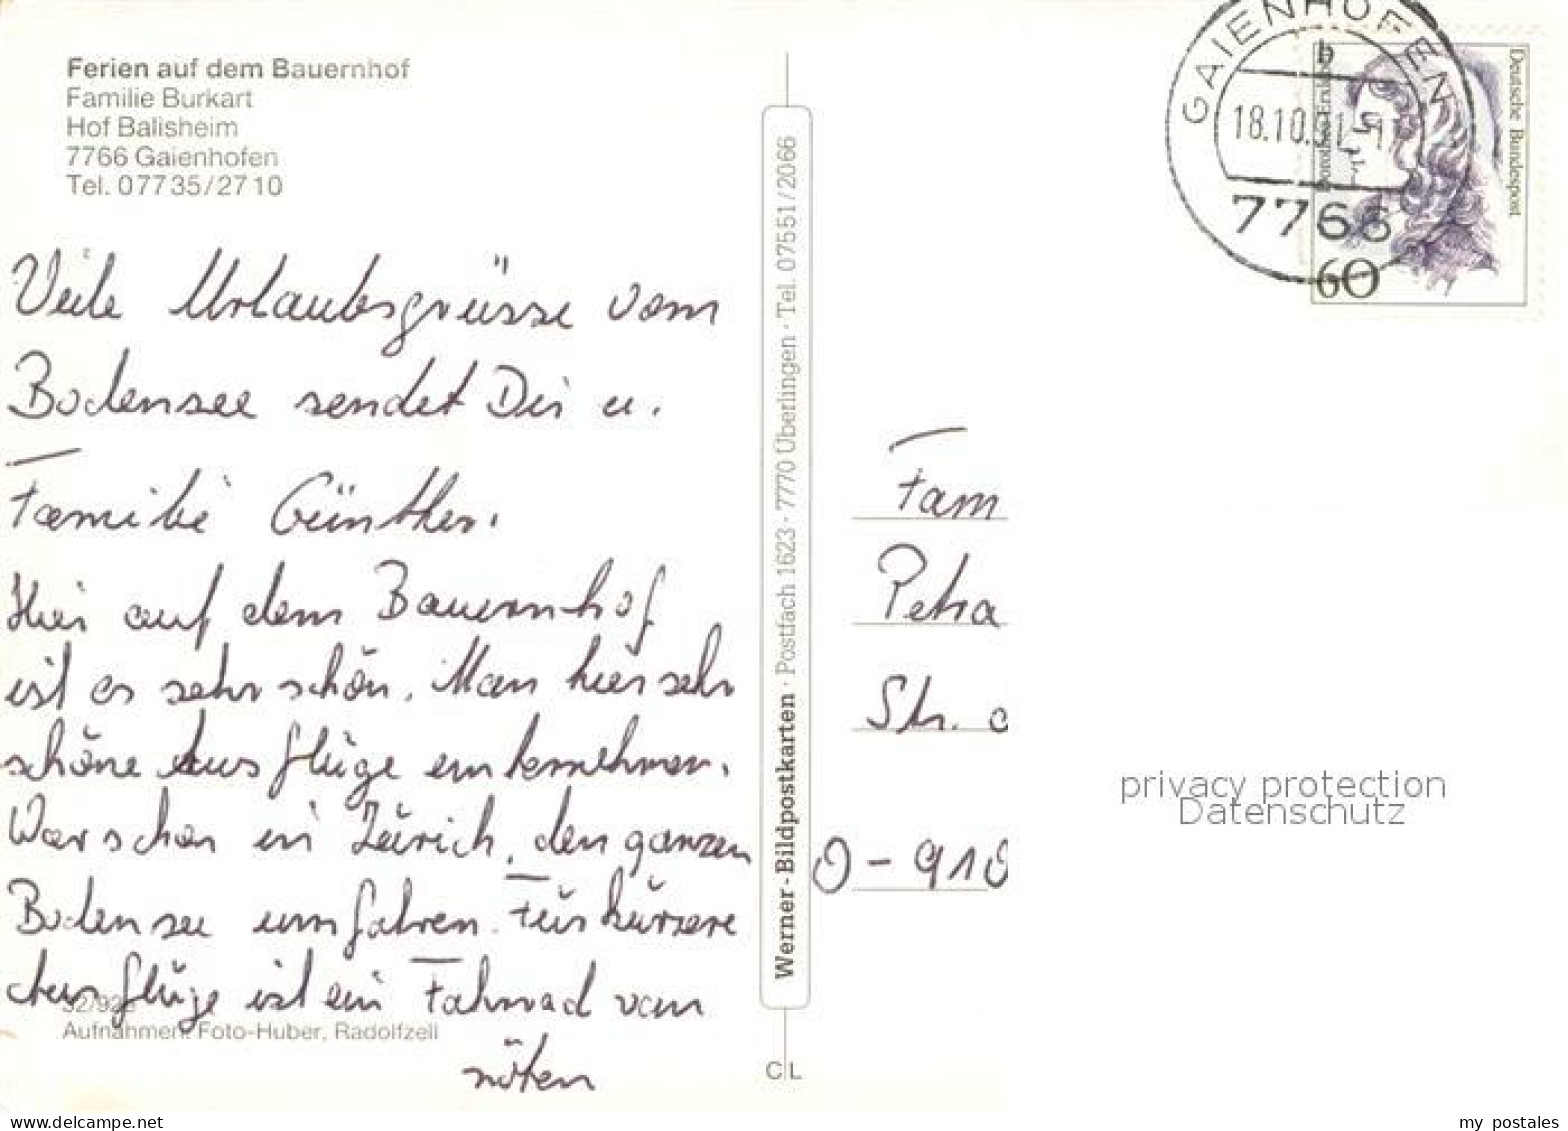 Ferien auf dem Bauernhof
Familie Burkart
Hof Balisheim
7766 Gaienhofen
Tel. 07735/2710
Veile Urlaubsgrüsse vom
Bodensee sendet Dir u.
Familie Günther.
Hier auf dem Bauernhof
ist es sehr schön. Man hier sehr
schöne Ausflüge unternehmen.
War schon in Zürich, den ganzen
Bodensee umfahren. Für kürzere
Ausflüge ist ein Fahrrad von
nöten
Aufnahmen: Foto-Huber, Radolfzell
Werner-Bildpostkarten · Postfach 1623 · 7770 Überlingen · Tel. 07551/2066
C L
GAIENHOFEN
b
18.10.
7766
Deutsche Bundespost
60
Fam
Petra
Str.
O-910
privacy protection
Datenschutz
www.delcampe.net
my_postales